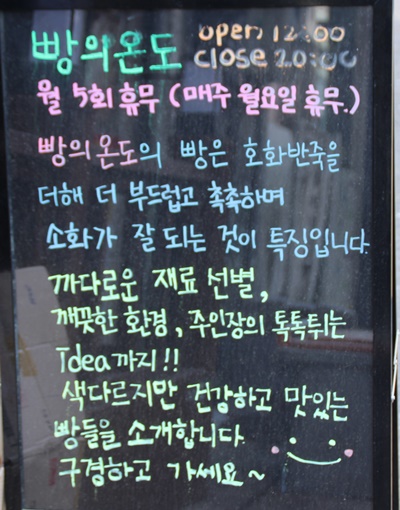 빵의온도 open 12:00
close 20:00
월 5회 휴무 (매주 월요일 휴무.)
빵의온도의 빵은 호화반죽을
더해 더 부드럽고 촉촉하며
소화가 잘 되는 것이 특징입니다.
까다로운 재료 선별,
깨끗한 환경, 주인장의 톡톡튀는
idea까지!!
색다르지만 건강하고 맛있는
빵들을 소개합니다.
구경하고 가세요~